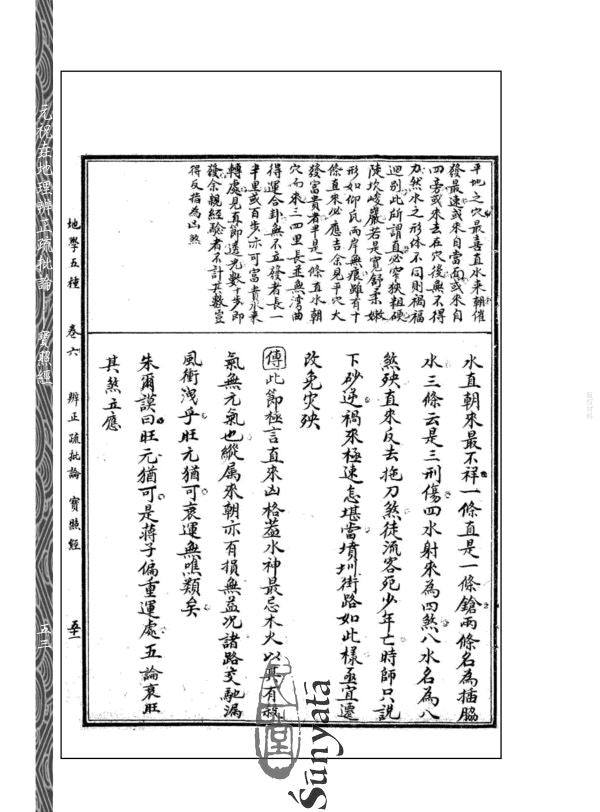 平地之穴最喜直水來朝催
發最速或來自當面或來自
四旁或來去在穴後無不得
力然水之形体不同則禍福
迥別此所謂直必窄狹粗硬
陡坎峻嚴若是寬舒柔嫩
形如仰瓦兩岸無痕雖有十
條直來必應吉余見平穴大
發富貴者半是一條直水朝
穴而來三四里長並無湾曲
得運合卦無不立發者長一
半里或百步亦可富貴水來
轉處見直節透光數十步即
發余親經驗者不計其數豈
得反指為凶煞
水直朝來最不祥一條直是一條鎗兩條名為插脇
水三條云是三刑傷四水射來為四煞八水名為八
煞殃直來反去拖刀煞徒流客死少年亡時師只説
下砂逆禍來極速怎堪當墳圳街路如此樣亟宜遷
改免灾殃
傳此節極言直來凶格葢水神最忌木火以其有殺
氣無元氣也縱属來朝亦有損無益况諸路交馳漏
風衝洩乎旺元猶可衰運無噍類矣
朱爾謨曰旺元猶可是蔣子偏重運處五論衰旺
其煞立應
地學五種 卷六 辨正疏批論 寶照經 五十一
元祝垚地理辨正疏批論 寶照經
五三
Śūnyatā
版权材料